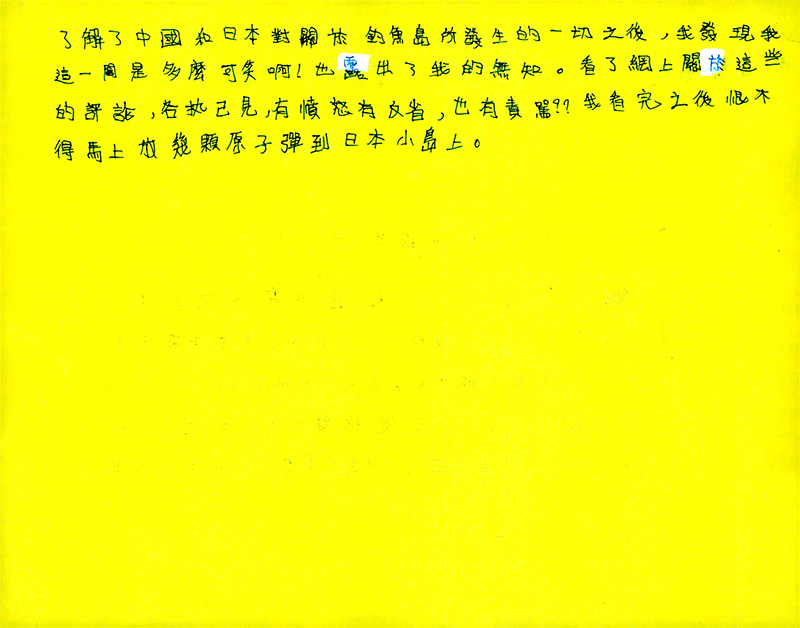 了解了中國和日本對關於釣魚島所發生的一切之後，我發現我
這一周是多麼可笑啊！也露出了我的無知。看了網上關於這些
的評論，各执己見，有憤怒有反省，也有責罵？？我看完之後恨不
得馬上放幾顆原子彈到日本小島上。